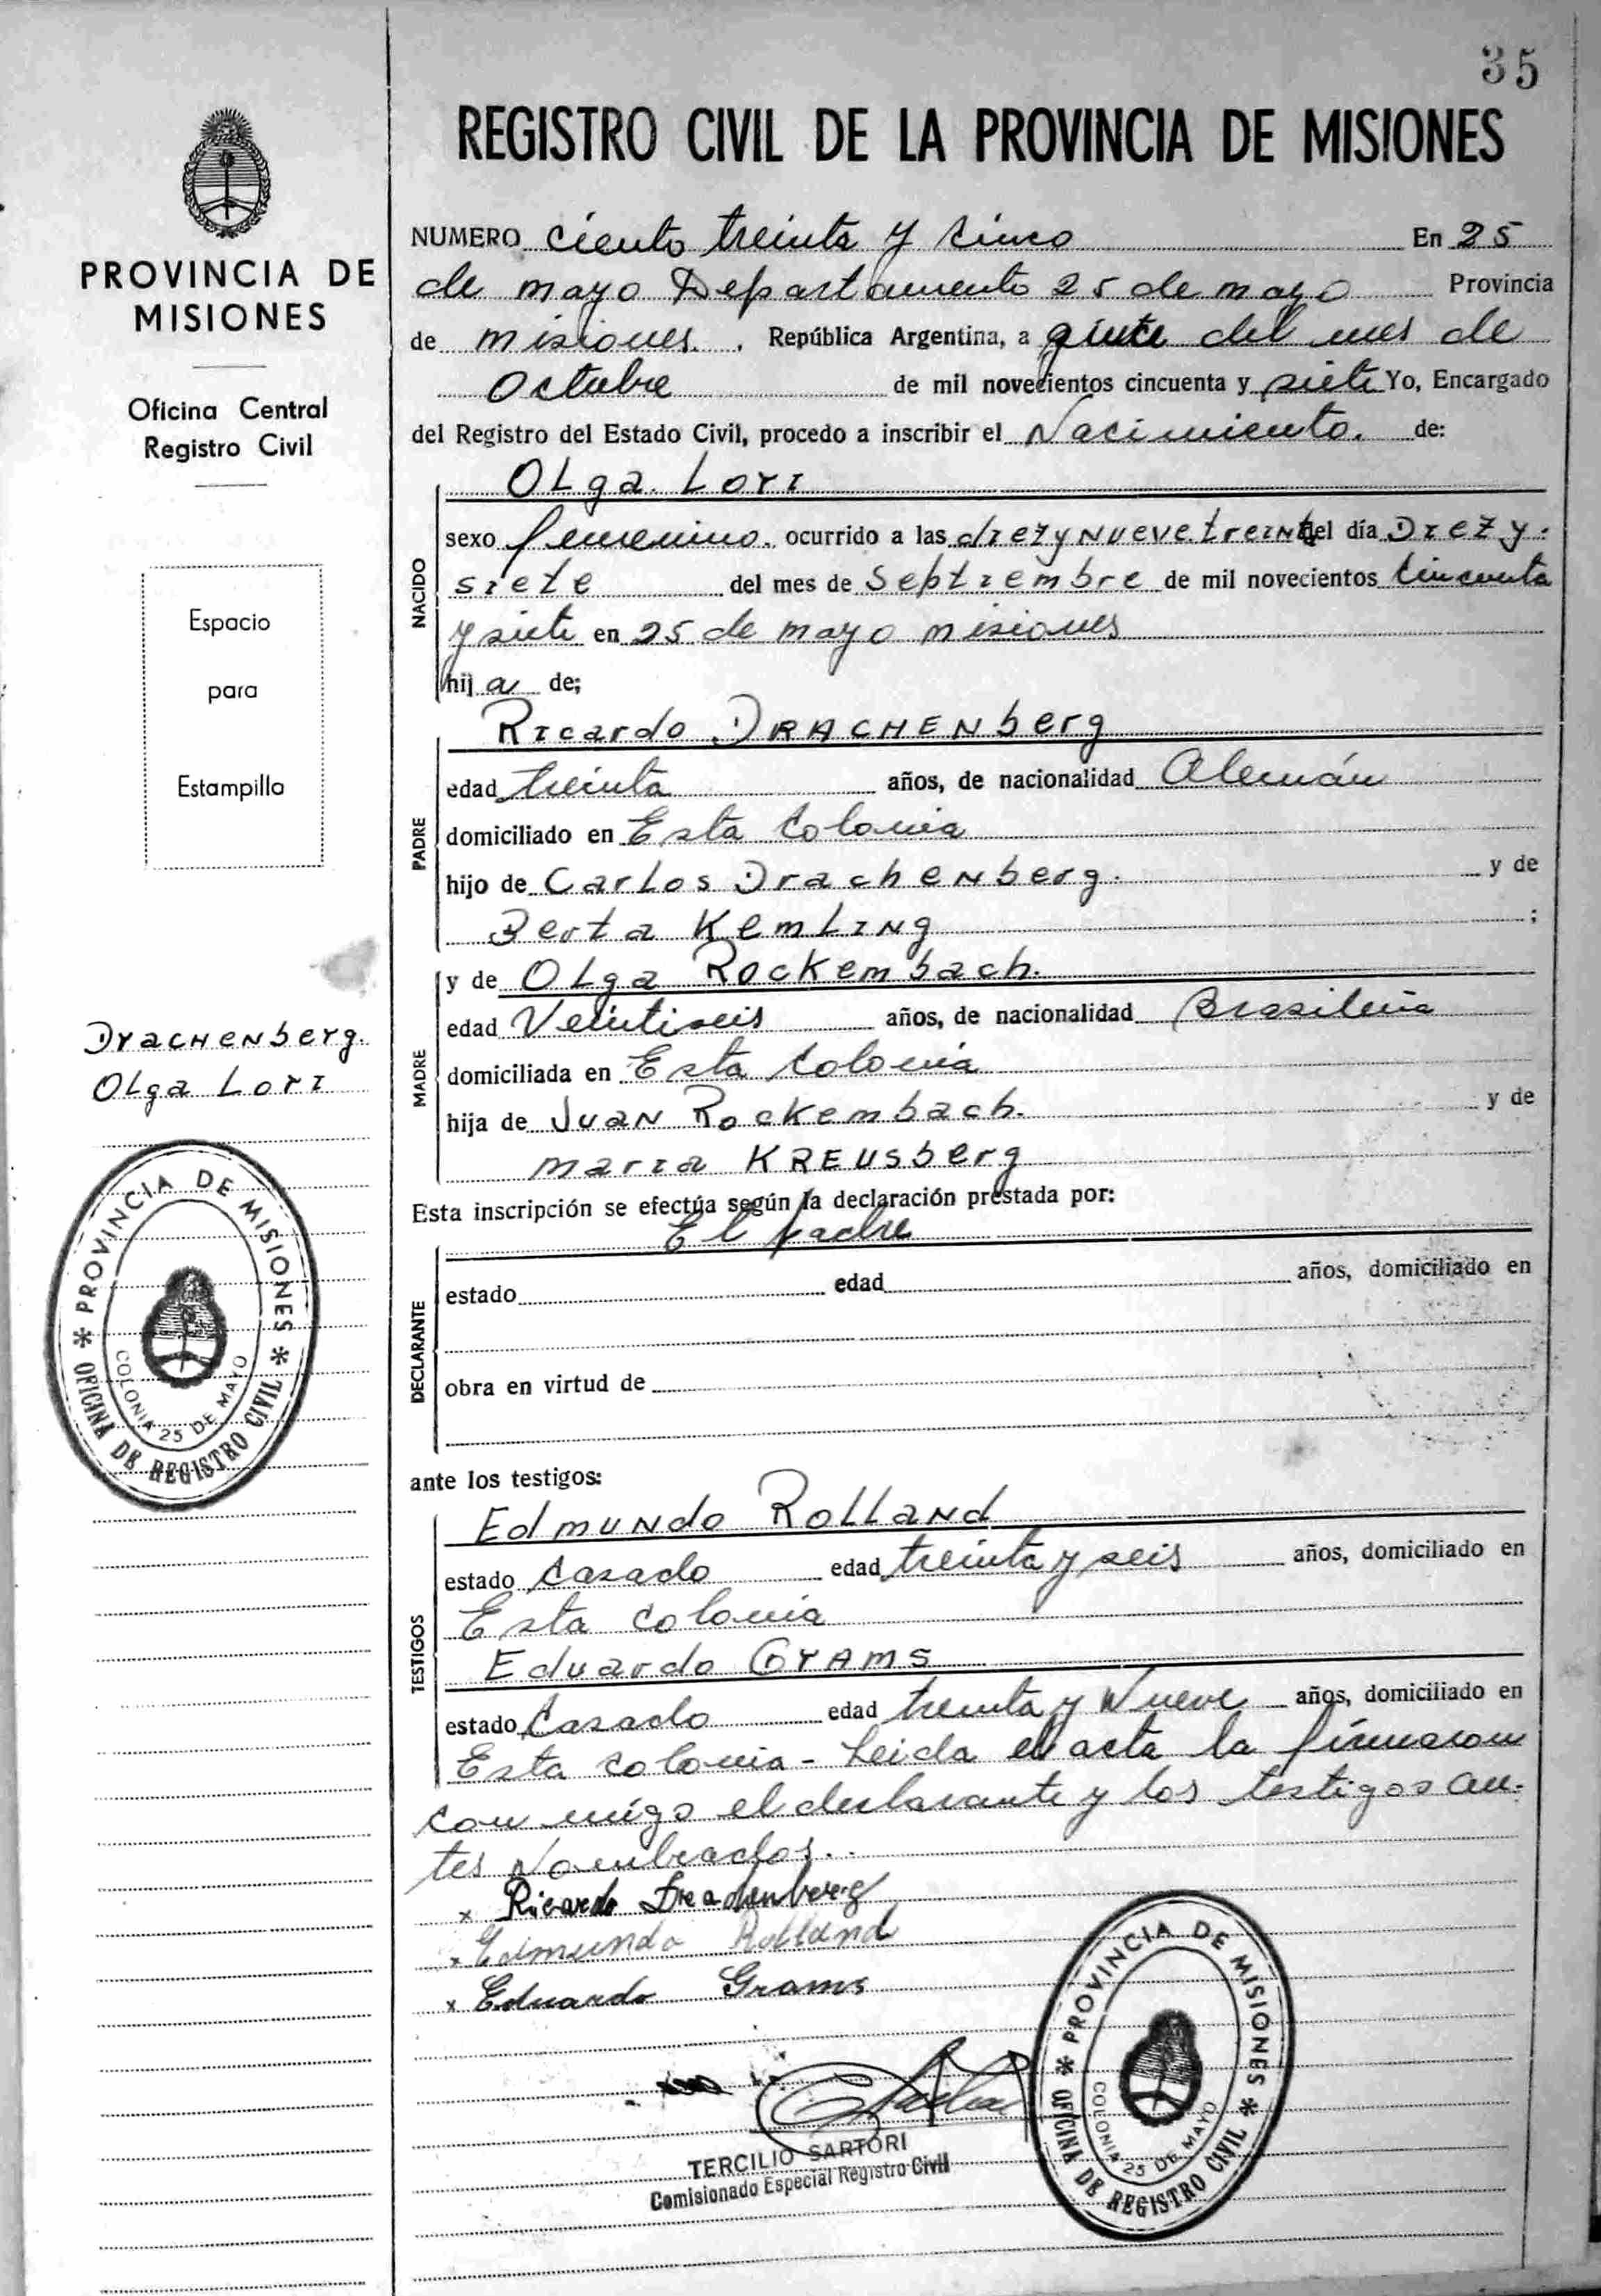 35
REGISTRO CIVIL DE LA PROVINCIA DE MISIONES
PROVINCIA DE
MISIONES
Oficina Central
Registro Civil
Espacio
para
Estampilla
Drachenberg.
Olga Lori
PROVINCIA DE MISIONES
COLONIA 25 DE MAYO
OFICINA DE REGISTRO CIVIL
NUMERO ciento treinta y cinco En 25
de mayo Departamento 25 de mayo Provincia
de misiones. , República Argentina, a quince del mes de
Octubre de mil novecientos cincuenta y siete Yo, Encargado
del Registro del Estado Civil, procedo a inscribir el Nacimiento. de:
NACIDO
Olga Lori
sexo femenino. ocurrido a las diez y nueve treinta del día Diez y
siete del mes de Septiembre de mil novecientos cincuenta
y siete en 25 de mayo misiones
hij a de;
PADRE
Ricardo DRACHENberg
edad treinta años, de nacionalidad Alemán
domiciliado en Esta Colonia
hijo de Carlos Drachenberg. y de
Berta Kemling ;
MADRE
y de Olga Rockembach.
edad Veintiseis años, de nacionalidad Brasileña
domiciliada en Esta Colonia
hija de Juan Rockembach. y de
maria KREUSberg
Esta inscripción se efectúa según la declaración prestada por:
El padre
DECLARANTE
estado edad años, domiciliado en
obra en virtud de
ante los testigos:
TESTIGOS
Edmundo Rolland
estado Casado edad treinta y seis años, domiciliado en
Esta colonia
Eduardo Grams
estado Casado edad treinta y Nueve años, domiciliado en
Esta colonia - Leida el acta la firmaron
con migo el declarante y los testigos an-
tes Nombrados.
x Ricardo Drachenberg
x Edmundo Rolland
x Eduardo Grams
TERCILIO SARTORI
Comisionado Especial Registro Civil
PROVINCIA DE MISIONES
COLONIA 25 DE MAYO
OFICINA DE REGISTRO CIVIL